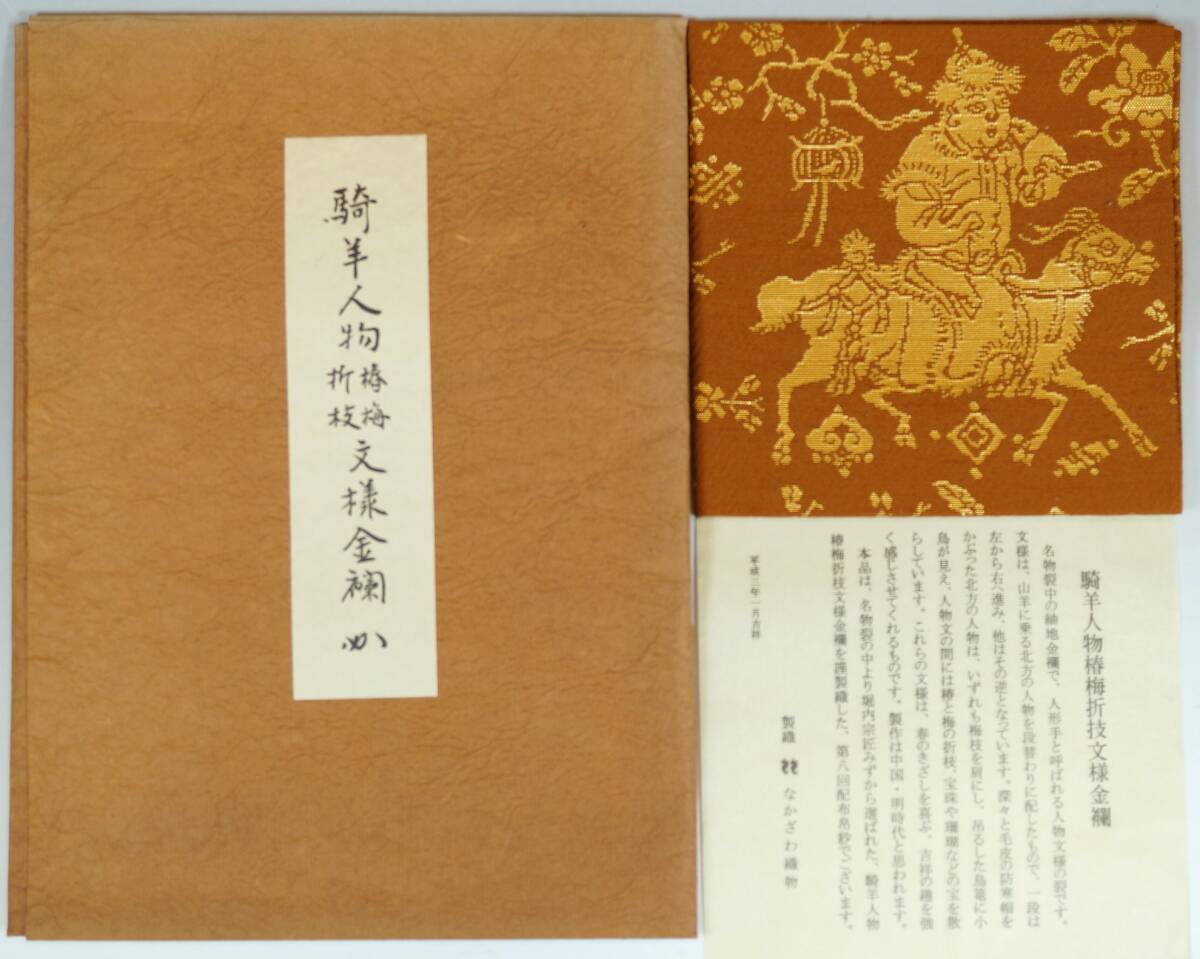 騎羊人物椿梅折枝文様金襴
騎羊人物椿梅折技文様金襴
名物裂中の紬地金襴で、人形手と呼ばれる人物文様の裂です。
文様は、山羊に乗る北方の人物を段替わりに配したもので、一段は
左から右へ進み、他はその逆となっています。深々と毛皮の防寒帽を
かぶった北方の人物は、いずれも梅枝を肩にし、吊るした鳥篭に小
鳥が見え、人物文の間には椿と梅の折枝、宝珠や珊瑚などの宝を散
らしています。これらの文様は、春のきざしを喜ぶ、吉祥の趣を強
く感じさせてくれるものです。製作は中国・明時代と思われます。
本品は、名物裂の中より堀内宗匠みずから選ばれた、騎羊人物
椿梅折枝文様金襴を謹製織した、第八回配布帛紗でございます。
平成三年一月吉祥
製織 なかざわ織物